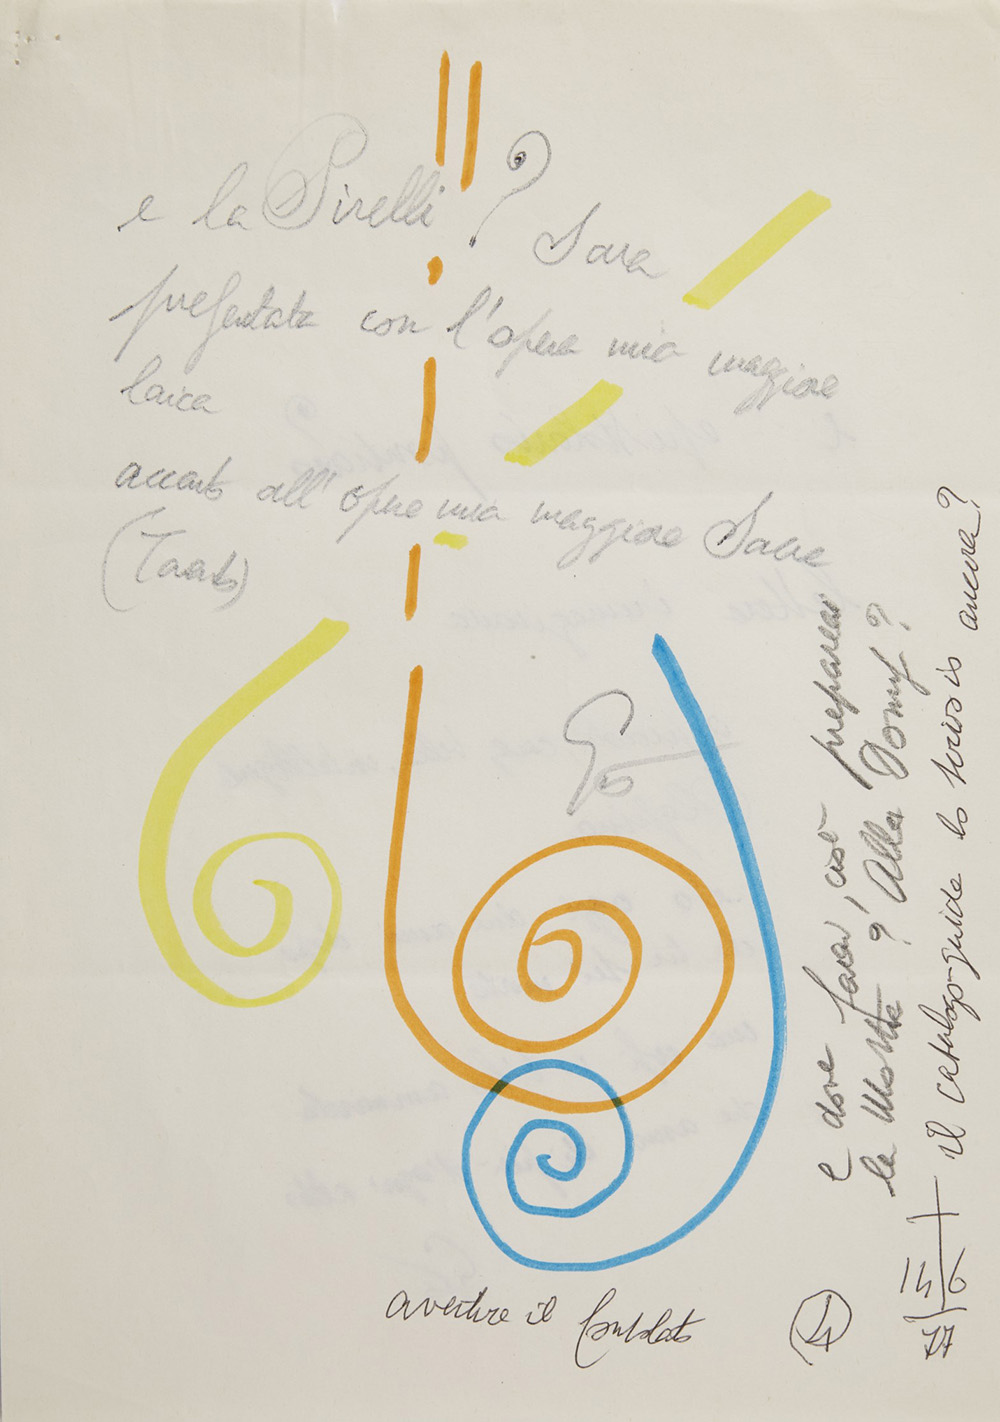 e la Pirelli ? Sara
presentata con l'opera mia maggiore
laica
accanto all'opera mia maggiore Sacra
(Taranto)
Gio
e dove farai, cioè preparerai
la Mostra ? Alla Domus ?
il catalogo-guida lo scrivo io ancora?
avertire il Consolato
4
77